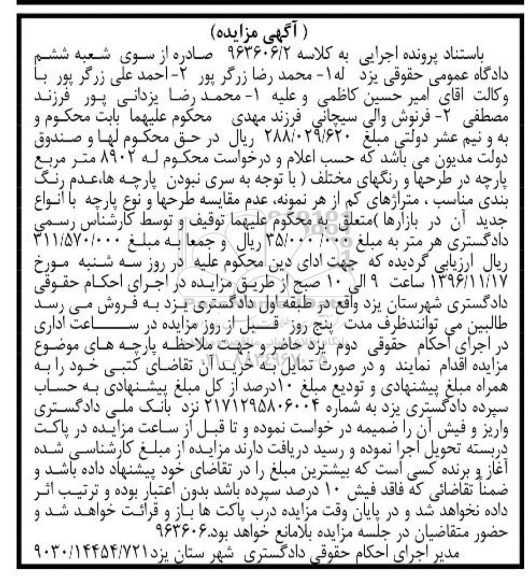 ( آگهی مزایده)
باستناد پرونده اجرایی به کلاسه ۹۶۳۶۰۶/۲ صادره از سوی شعبه ششم
دادگاه عمومی حقوقی یزد له۱- محمد رضا زرگر پور ۲- احمد علی زرگر پور با
وکالت اقای امیر حسین کاظمی و علیه ۱- محمد رضا یزدانی پور فرزند
مصطفی ۲- فرنوش والی سیچانی فرزند مهدی محکوم علیهما بابت محکوم و
به و نیم عشر دولتی مبلغ ۲۸۸/۰۲۹/۶۲۰ ریال در حق محکوم لها و صندوق
دولت مدیون می باشد که حسب اعلام و درخواست محکوم لـه ۸۹۰۲ متر مربع
پارچه در طرحها و رنگهای مختلف ( با توجه به سری نبودن پارچه ها،عدم رنگ
بندی مناسب ، متراژهای کم از هر نمونه، عدم مقایسه طرحها و نوع پارچه با انواع
جدید آن در بازارها )متعلق به محکوم علیهما توقیف و توسط کارشناس رسمی
دادگستری هر متر به مبلغ ۳۵/۰۰۰/۰۰ ریال و جمعا به مبلغ ۳۱۱/۵۷۰/۰۰۰
ریال ارزیابی گردیده که جهت ادای دین محکوم علیه در روز سه شنبه مورخ
۱۳۹۶/۱۱/۱۷ ساعت ۹ الی ۱۰ صبح از طریق مزایده در اجرای احکام حقوقی
دادگستری شهرستان یزد واقع در طبقه اول دادگستری یزد به فروش می رسد
طالبین می توانندظرف مدت پنج روز قبل از روز مزایده در ساعت اداری
در اجرای احکام حقوقی دوم یزد حاضر و جهت ملاحظه پارچه های موضوع
مزایده اقدام نمایند و در صورت تمایل به خرید آن تقاضای کتبی خود را به
همراه مبلغ پیشنهادی و تودیع مبلغ ۱۰درصد از کل مبلغ پیشنهادی به حساب
سپرده دادگستری یزد به شماره ۲۱۷۱۲۹۵۸۰۶۰۰۴ نزد بانک ملی دادگستری
واریز و فیش آن را ضمیمه در خواست نموده و تا قبل از ساعت مزایده در پاکت
دربسته تحویل اجرا نموده و رسید دریافت دارند مزایده از مبلغ کارشناسی شده
آغاز و برنده کسی است که بیشترین مبلغ را در تقاضای خود پیشنهاد داده باشد و
ضمناً تقاضائی که فاقد فیش ۱۰ درصد سپرده باشد بدون اعتبار بوده و ترتیب اثر
داده نخواهد شد و در پایان وقت مزایده درب پاکت ها باز و قرائت خواهد شد و
حضور متقاضیان در جلسه مزایده بلامانع خواهد بود.۹۶۳۶۰۶
مدیر اجرای احکام حقوقی دادگستری شهر ستان یزد۹۰۳۰/۱۴۴۵۴/۷۲۱